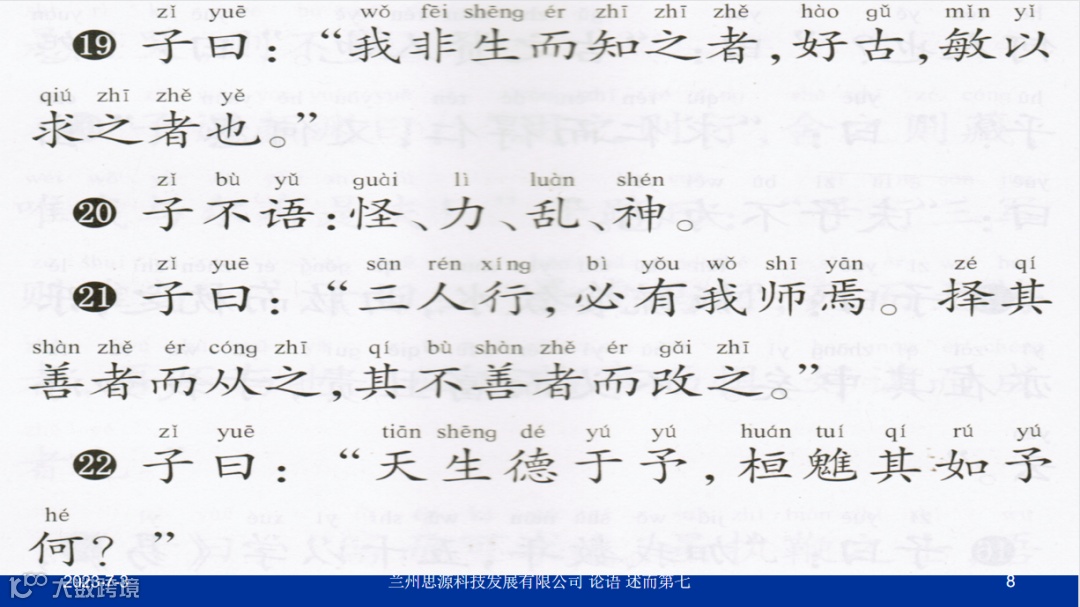 zǐ yuē wǒ fēi shēng ér zhī zhī zhě hào gǔ mǐn yǐ
19 子曰：“我非生而知之者，好古，敏以
qiú zhī zhě yě
求之者也。”
zǐ bù yǔ guài lì luàn shén
20 子不语：怪、力、乱、神。
zǐ yuē sān rén xíng bì yǒu wǒ shī yān zé qí
21 子曰：“三人行，必有我师焉。择其
shàn zhě ér cóng zhī qí bù shàn zhě ér gǎi zhī
善者而从之，其不善者而改之。”
zǐ yuē tiān shēng dé yú yú huán tuí qí rú yú
22 子曰：“天生德于予，桓魋其如予
hé
何？”
2023-7-3 兰州思源科技发展有限公司 论语 述而第七 8
大数跨境